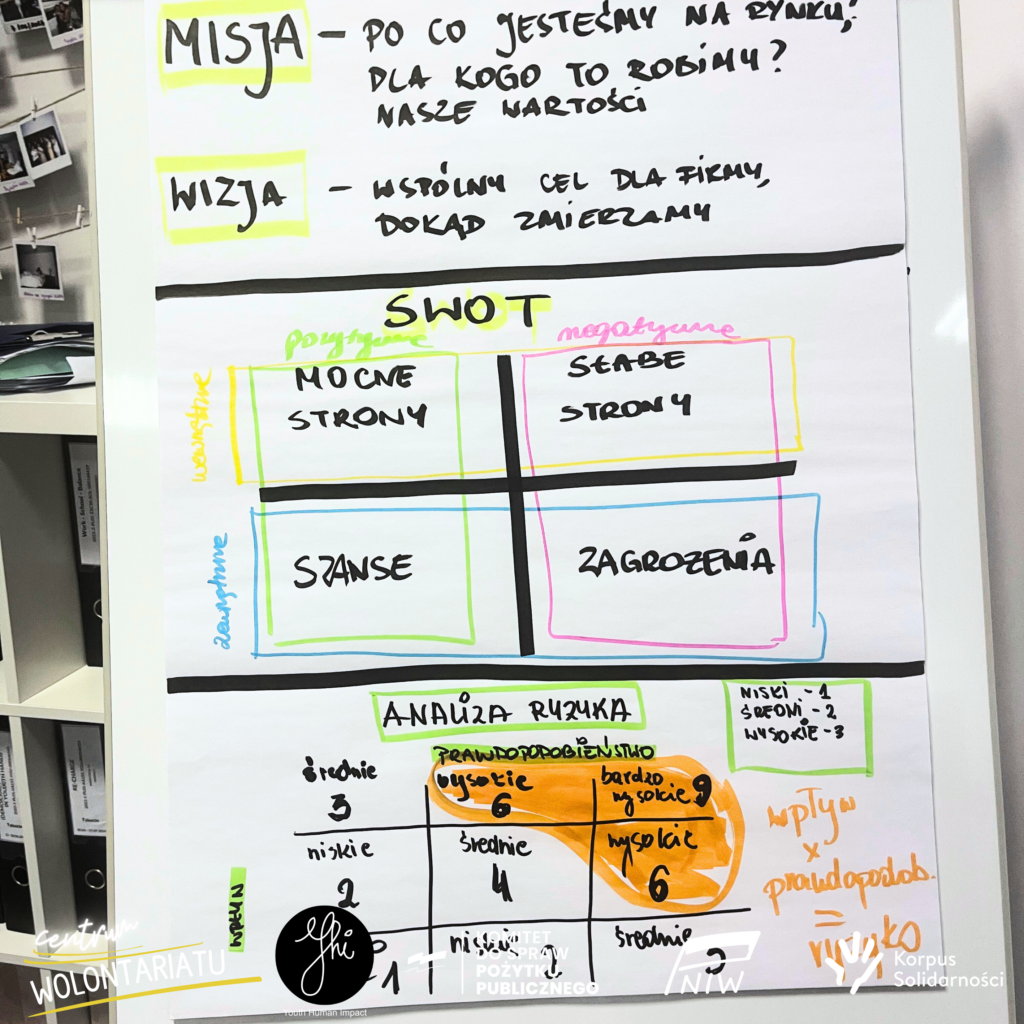 MISJA – PO CO JESTEŚMY NA RYNKU,
DLA KOGO TO ROBIMY?
NASZE WARTOŚCI
WIZJA – WSPÓLNY CEL DLA FIRMY,
DOKĄD ZMIERZAMY
SWOT
pozytywne negatywne
wewnętrzne
MOCNE STRONY
SŁABE STRONY
zewnętrzne
SZANSE
ZAGROŻENIA
ANALIZA RYZYKA
NISKI - 1
ŚREDNI - 2
WYSOKIE - 3
PRAWDOPODOBIEŃSTWO
średnie wysokie bardzo wysokie
3 6 9
niskie średnie wysokie
2 4 6
WPŁYW
średnie
1 2 3
wpływ
x
prawdopodob.
=
ryzyko
centrum
WOLONTARIATU
Yhi
Youth Human Impact
KOMITET
DO SPRAW
POŻYTKU
PUBLICZNEGO
NIW
Korpus
Solidarności
Work - School - Balance
RE-CHARGE